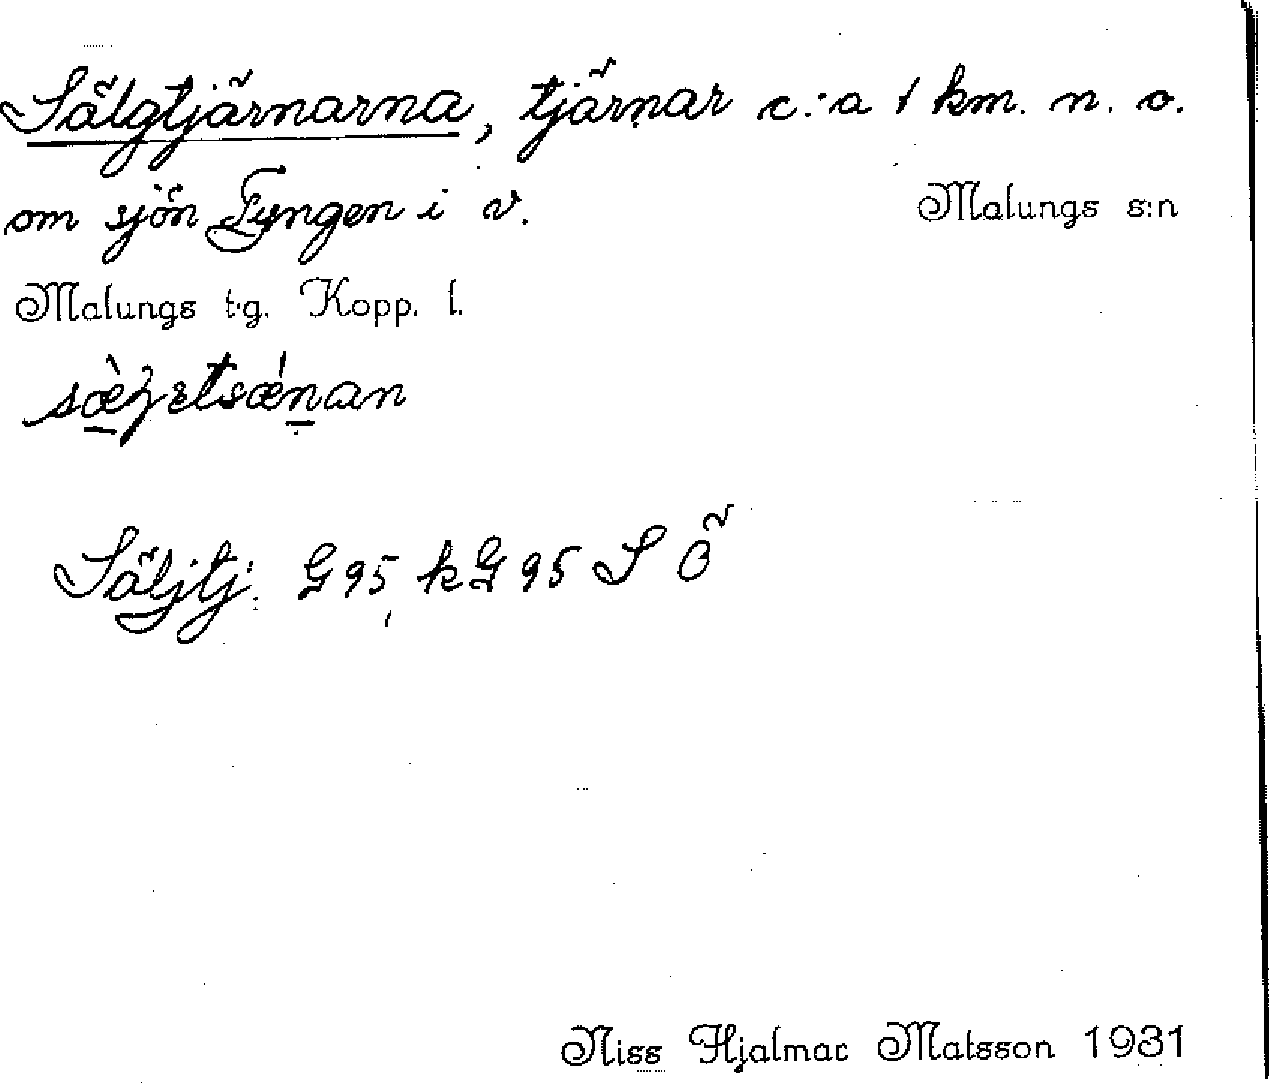 Sälgtjärnarna, tjärnar c:a 1 km. n. o.
om sjön Tyngen i v. Malungs s:n
Malungs t.g. Kopp. l.
Säljtj: G95, kG95 S Ö
Niss Hjalmar Matsson 1931